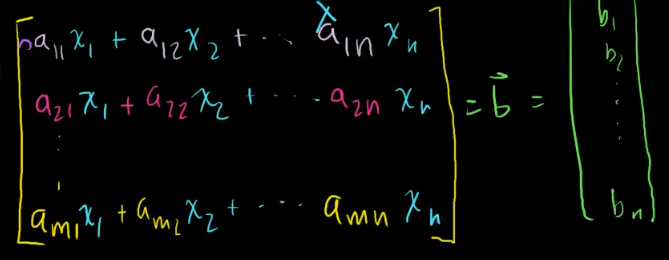 a₁₁x₁ + a₁₂x₂ + ··· a₁ₙxₙ
a₂₁x₁ + a₂₂x₂ + ··· a₂ₙxₙ
⋮
aₘ₁x₁ + aₘ₂x₂ + ··· aₘₙxₙ
= b⃗ =
b₁
b₂
⋮
bₙ